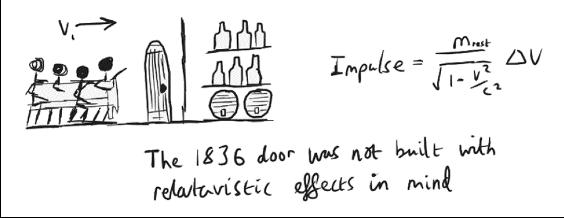 V₁ →
Impulse = m_rest / √(1 - V²/c²) ΔV
The 1836 door was not built with
relatavistic effects in mind